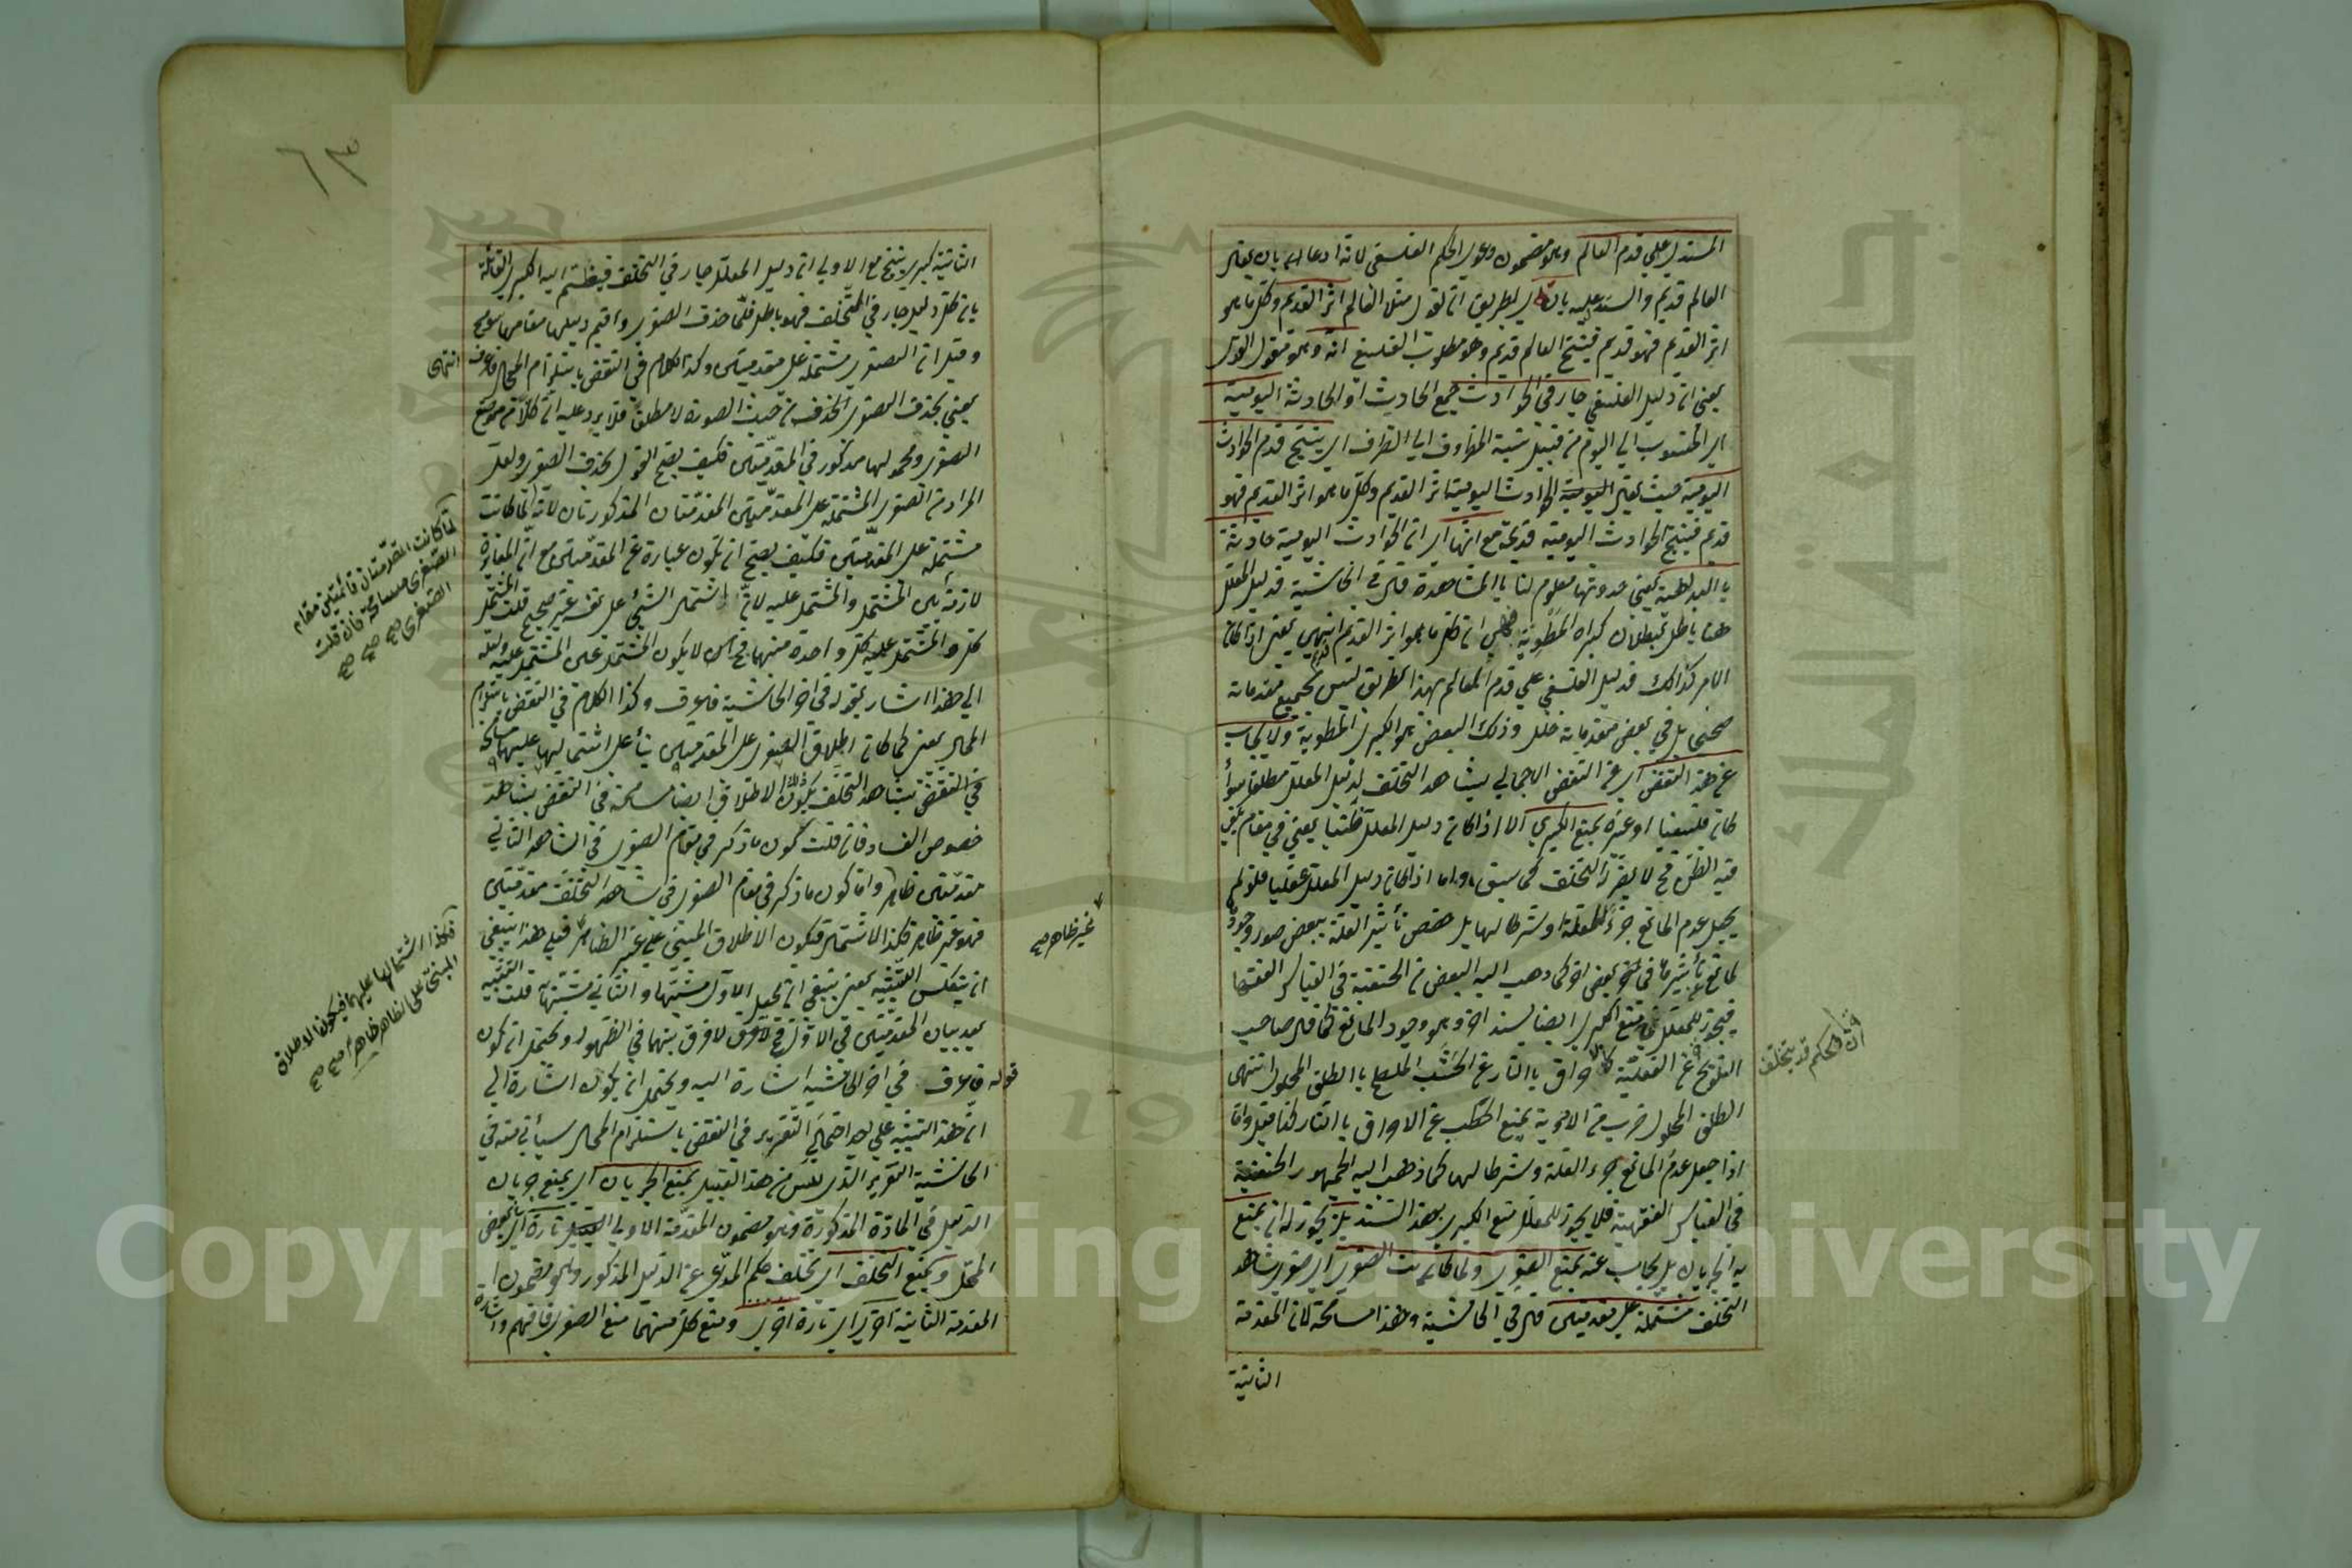 المستدل علي قدم العالم وهو مضمون دعوي الحكم الفلسفي لانه ادعا
العالم قديم والسند عليه بان بطريق ان يقول مثلا العالم اثر القديم وكل ما هو
اثر القديم فهو قديم فينتج العالم قديم وهو مطلوب الفلسفي انه وهو مقول القول
يعني ان دليل الفلسفي جار في الحوادث جمع الحادث او الحادثة اليومية
اي المنسوب الي اليوم من قبيل نسبة المظروف الي الظرف اي ينتج قدم الحوادث
اليومية حيث يقال الحوادث اليومية اثر القديم وكل ما هو اثر القديم فهو
قديم فينتج الحوادث اليومية قديمة مع انها اي ان الحوادث اليومية حادثة
بالبداهة يعني حدوثها معلوم لنا بالمشاهدة قال في الحاشية فدليل المعلل
هنا باطل ببطلان كبراه المطوية وهي ان كل ما هو اثر القديم انتهي يعني اذا كان
الامر كذلك فدليل الفلسفي علي قدم العالم بهذا الطريق ليس بجميع مقدماته
صحيح بل في بعض مقدماته خلل وذلك البعض هو الكبري المطوية ولا يجاب
عن هذا النقض اي عن النقض الاجمالي بشاهد التخلف لدليل المعلل مطلقا سواء
كان فلسفيا او غيره بمنع الكبري الا اذا كان دليل المعلل ظنيا يعني في مقام يكفي
فيه الظن فح لا يضر التخلف كما سبق واما اذا كان دليل المعلل عقليا فلو لم
يجعل عدم المانع جزء للعلة او شرطا لها بل خص تأثير العلة ببعض صور وجود
لمانع تأثيرها في بعض اخر كما ذهب اليه البعض من الحنفية في القياس الفقها
فيجوز للمعلل منع الكبري ايضا لسند اخر وهو وجود المانع كما قال صاحب
التلويح عن العقلية كالاحراق بالنار عن الخشب الملطخ بالطلق المحلول انتهي
الطلق المحلول ضرب من الادوية يمنع الحطب عن الاحراق بالنار كذا قيل واما
اذا جعل عدم المانع جزء العلة وشرطا لها كما ذهب اليه الجمهور الحنفية
في القياس الفقهية فلا يجوز للمعلل منع الكبري بهذا السند بل يجوز له ان يمنع
به الجريان بل يجاب عنه بمنع الصغري ولما كانت الصغري اي صغري شاهد
التخلف مشتملة علي مقدمتين قال في الحاشية وهذا مسامحة لان المقدمة
الثانية
ان الحكم قد يتخلف
٦٣
الثانية كبري ينتج مع الاولي ان دليل المعلل جار في التخلف فينضم اليه الكبري القائلة
بان كل دليل جار في المتخلف فهو باطل فلما حذف الصغري واقيم دليلها مقامها سومح
وقيل ان الصغري مشتملة علي مقدمتين وكذا الكلام في النقض باستلزام المحال فاعرف انتهي
يعني بحذف الصغري الحذف من حيث الصورة لا مطلقا فلا يرد عليه ان كلا من موضوع
الصغري ومحمولها مذكور في المقدمتين فكيف يصح القول بحذف الصغري ولعل
المراد من الصغري المشتملة علي المقدمتين المقدمتان المذكورتان لانه لما كانت
مشتملة علي المقدمتين فكيف يصح ان تكون عبارة عن المقدمتين مع ان المغايرة
لازمة بين المشتمل والمشتمل عليه لان اشتمال الشيء علي نفسه غير صحيح قلت المشتمل
كل والمشتمل عليه كل واحدة منهما فح لا يكون المشتمل عين المشتمل عليه ولعله
الي هذا اشار بقوله في اخر الحاشية فاعرف وكذا الكلام في النقض باستلزام
المحال يعني كما كان اطلاق الصغري علي المقدمتين بناء علي اشتمالها عليهما مسامحة
في النقض بشاهد التخلف يكون ذلك الاطلاق ايضا مسامحة في النقض بشاهد
خصوص الفساد فان قلت كون ما ذكر في مقام الصغري في الشاهد الثاني
مقدمتين ظاهر واما كون ما ذكر في مقام الصغري في شاهد التخلف مقدمتين
فهو غير ظاهر فكذا الاشتمال فيكون الاطلاق المبني علي غير الظاهر فعلي هذا ينبغي
ان ينعكس التشبيه يعني ينبغي ان يجعل الاول مشبها والثاني مشبها به قلت التشبيه
بعد بيان المقدمتين في الاول فح لا فرق بينهما في الظهور ويحتمل ان يكون
قوله فاعرف في اخر الحاشية اشارة اليه ويحتمل ان يكون اشارة الي
ان هذا التشبيه علي احد احتمالي التقرير في النقض باستلزام المحال سيأتي منه في
الحاشية التقرير الذي ليس من هذا القبيل يمنع الجريان اي يمنع جريان
الدليل في المادة المذكورة وهو مضمون المقدمة الاولي تارة اي في بعض
المحل ويمنع التخلف اي تخلف حكم المدعي عن الدليل المذكور وهو مضمون
المقدمة الثانية اخري اي تارة اخري ومنع كل منهما منع الصغري فافهم واشارة
لما كانت المقدمتان قائمتين مقام
الصغري مسامحة فان قلت
الصغري صح صح صح
غير ظاهر صح
فكذا اشتمالها عليهما فيكون الاطلاق
المبني علي الظاهر ظاهرا صح صح